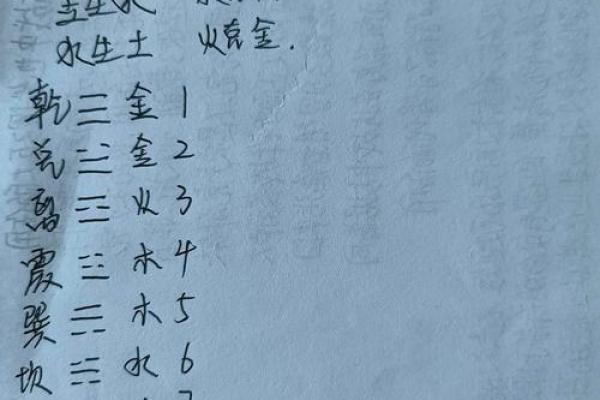 生水
水生土 火克金.
乾 ☰ 金 1
兑 ☱ 金 2
离 ☲ 火 3
震 ☳ 木 4
巽 ☴ 木 5
坎 ☵ 水 6